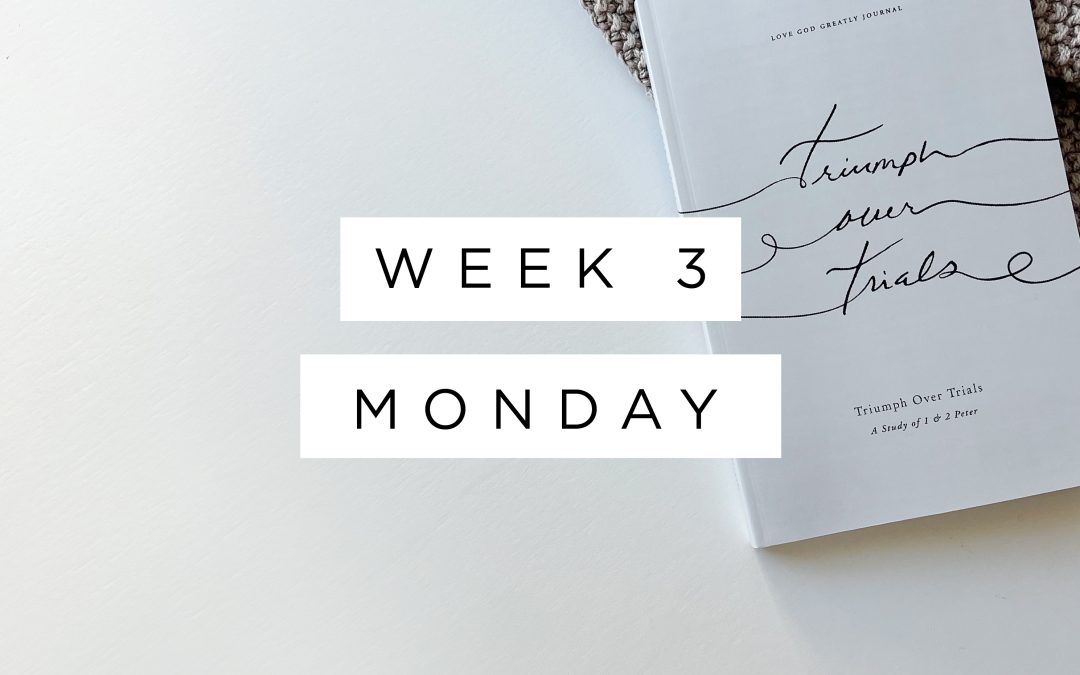 LOVE GOD GREATLY JOURNAL
Triumph
over
Trials
WEEK 3
MONDAY
Triumph Over Trials
A Study of 1 & 2 Peter